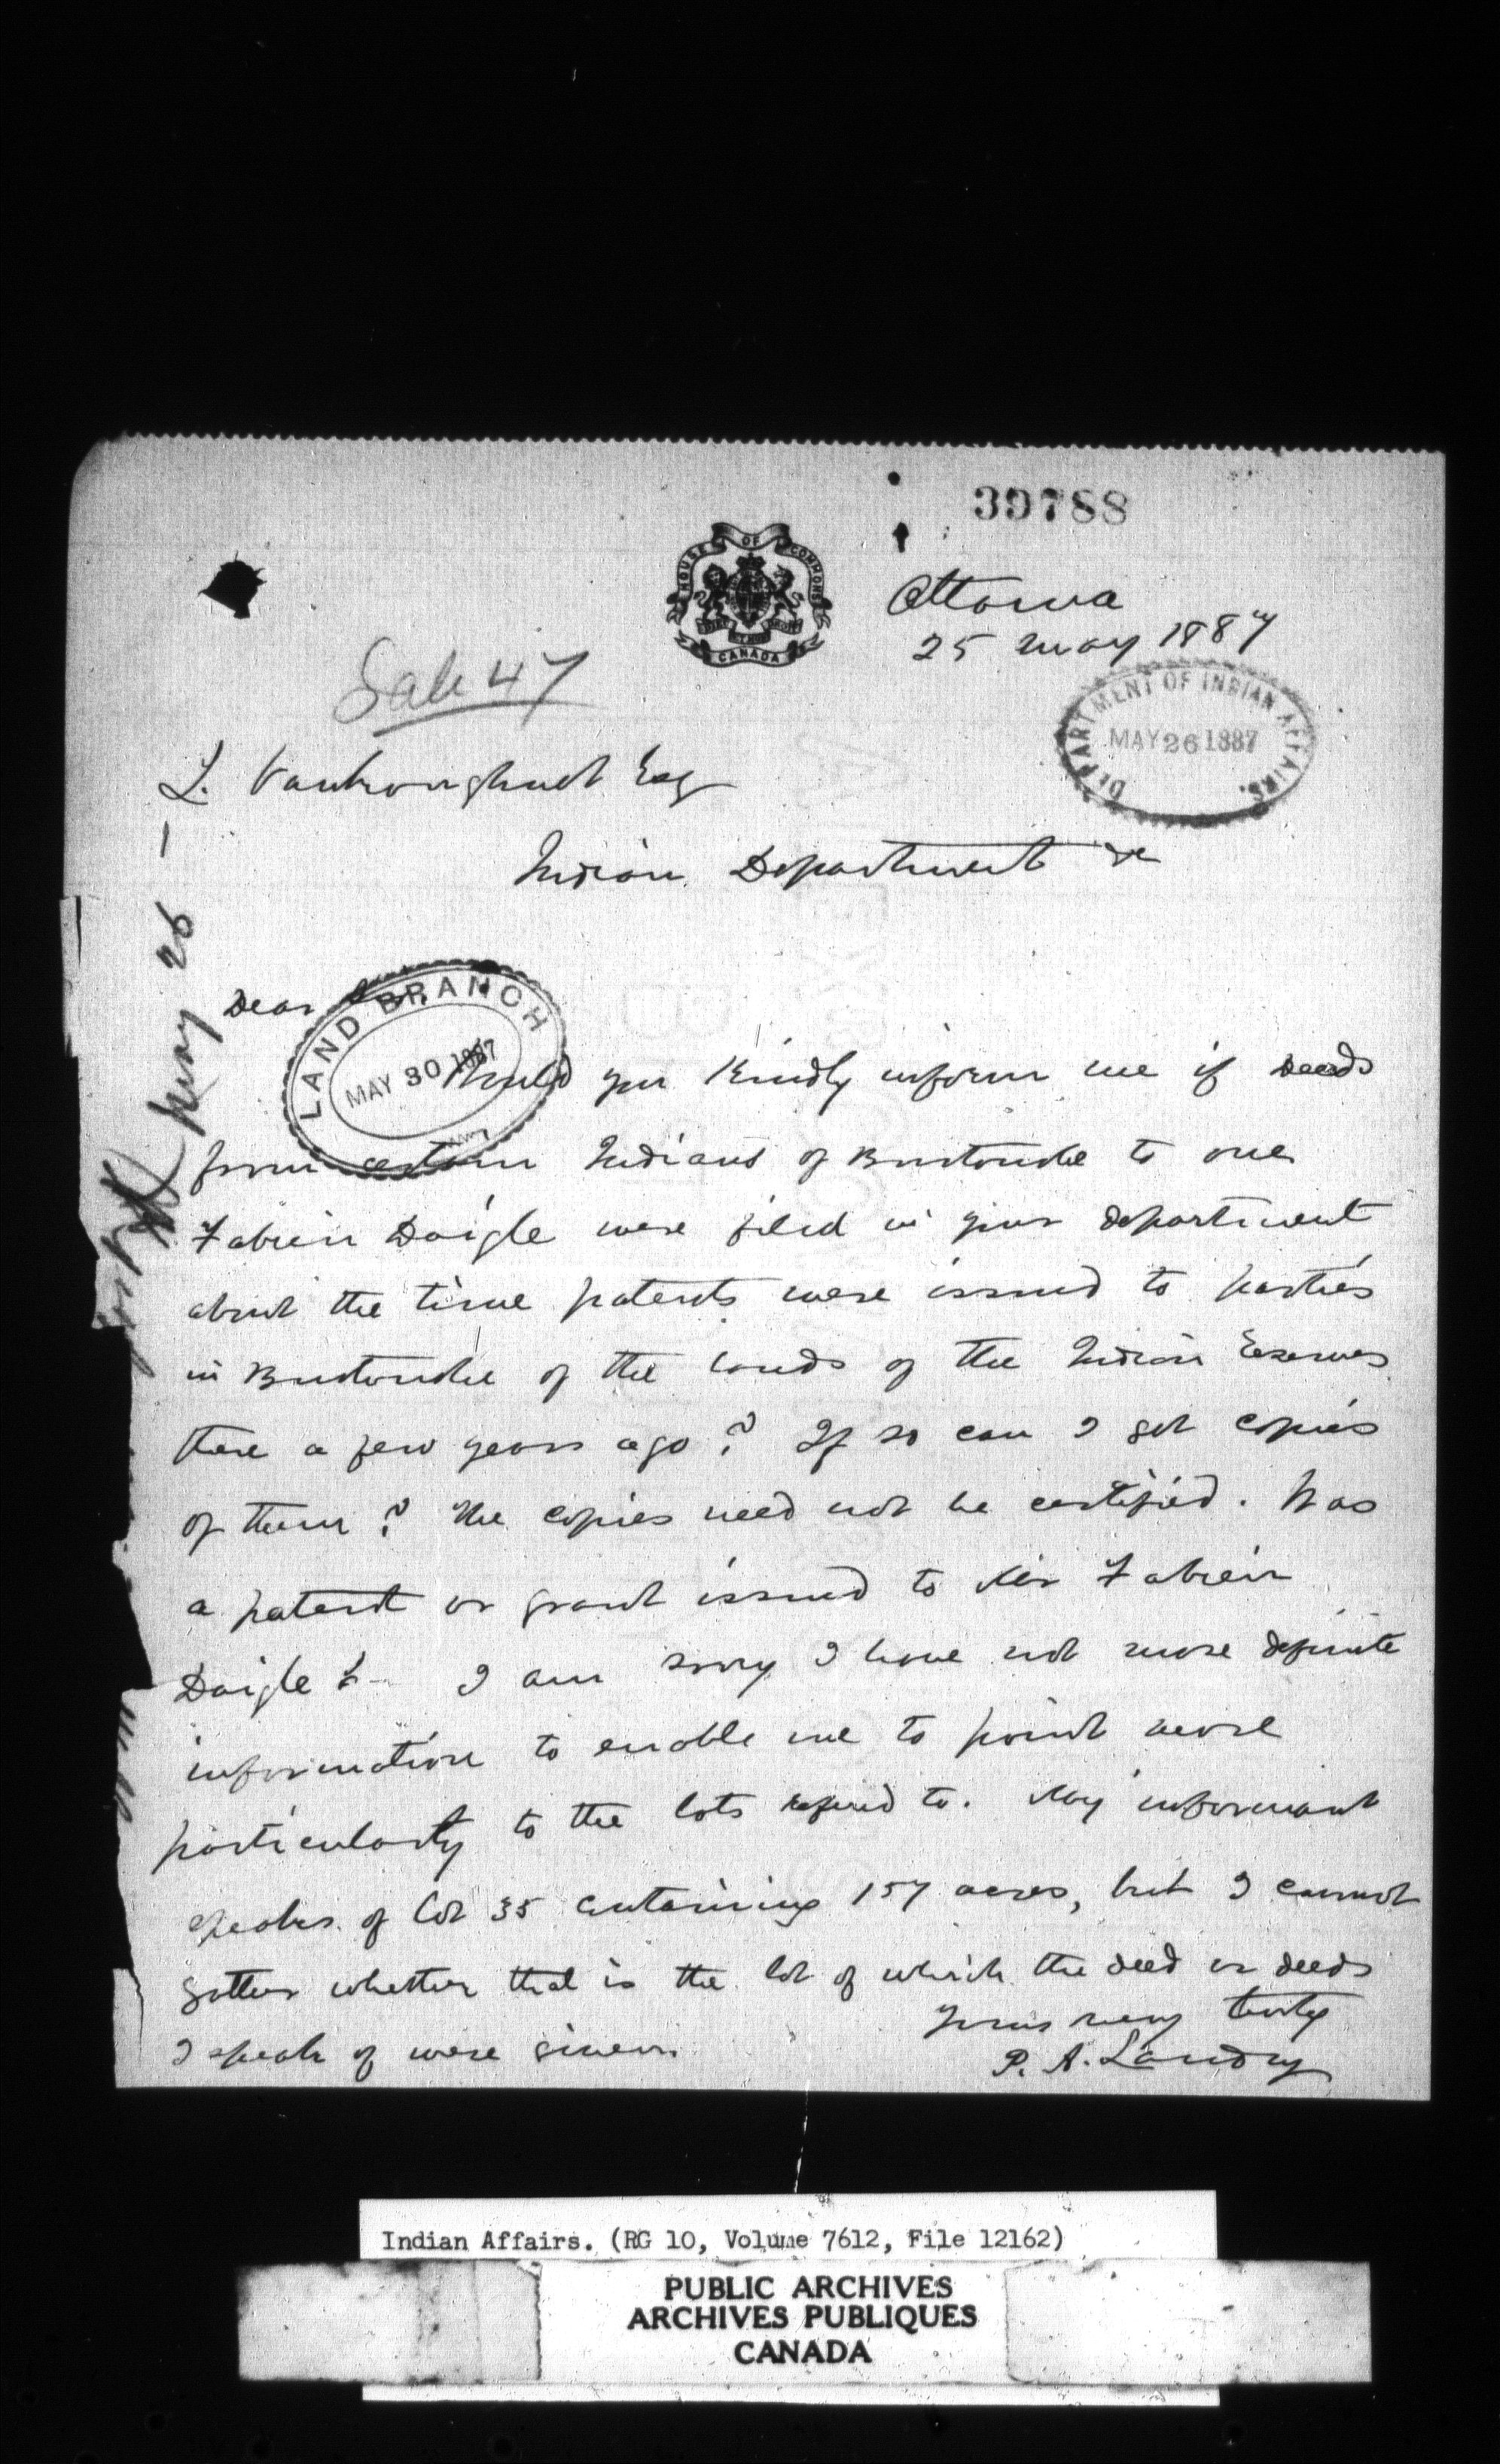 39788
HOUSE OF COMMONS
CANADA
Ottawa
25 May 1887
Sale 47
DEPARTMENT OF INDIAN AFFAIRS.
MAY 26 1887
L. Vankoughnet Esq
Indian Department &c
May 26
LAND BRANCH
MAY 30 1887
Dear Sir
Would you kindly inform me if deeds
from certain Indians of Buctouche to one
Fabien Daigle were filed in your department
about the time patents were issued to parties
in Buctouche of the lands of the Indian Reserves
there a few years ago? If so can I get copies
of them? The copies need not be certified. Was
a patent or grant issued to Mr Fabien
Daigle? – I am sorry I have not more definite
information to enable me to point more
particularly to the lots referred to. My informant
speaks of Lot 35 containing 157 acres, but I cannot
gather whether that is the lot of which the deed or deeds
I speak of were given.
Yours very truly
P. A. Landry
Indian Affairs. (RG 10, Volume 7612, File 12162)
PUBLIC ARCHIVES
ARCHIVES PUBLIQUES
CANADA